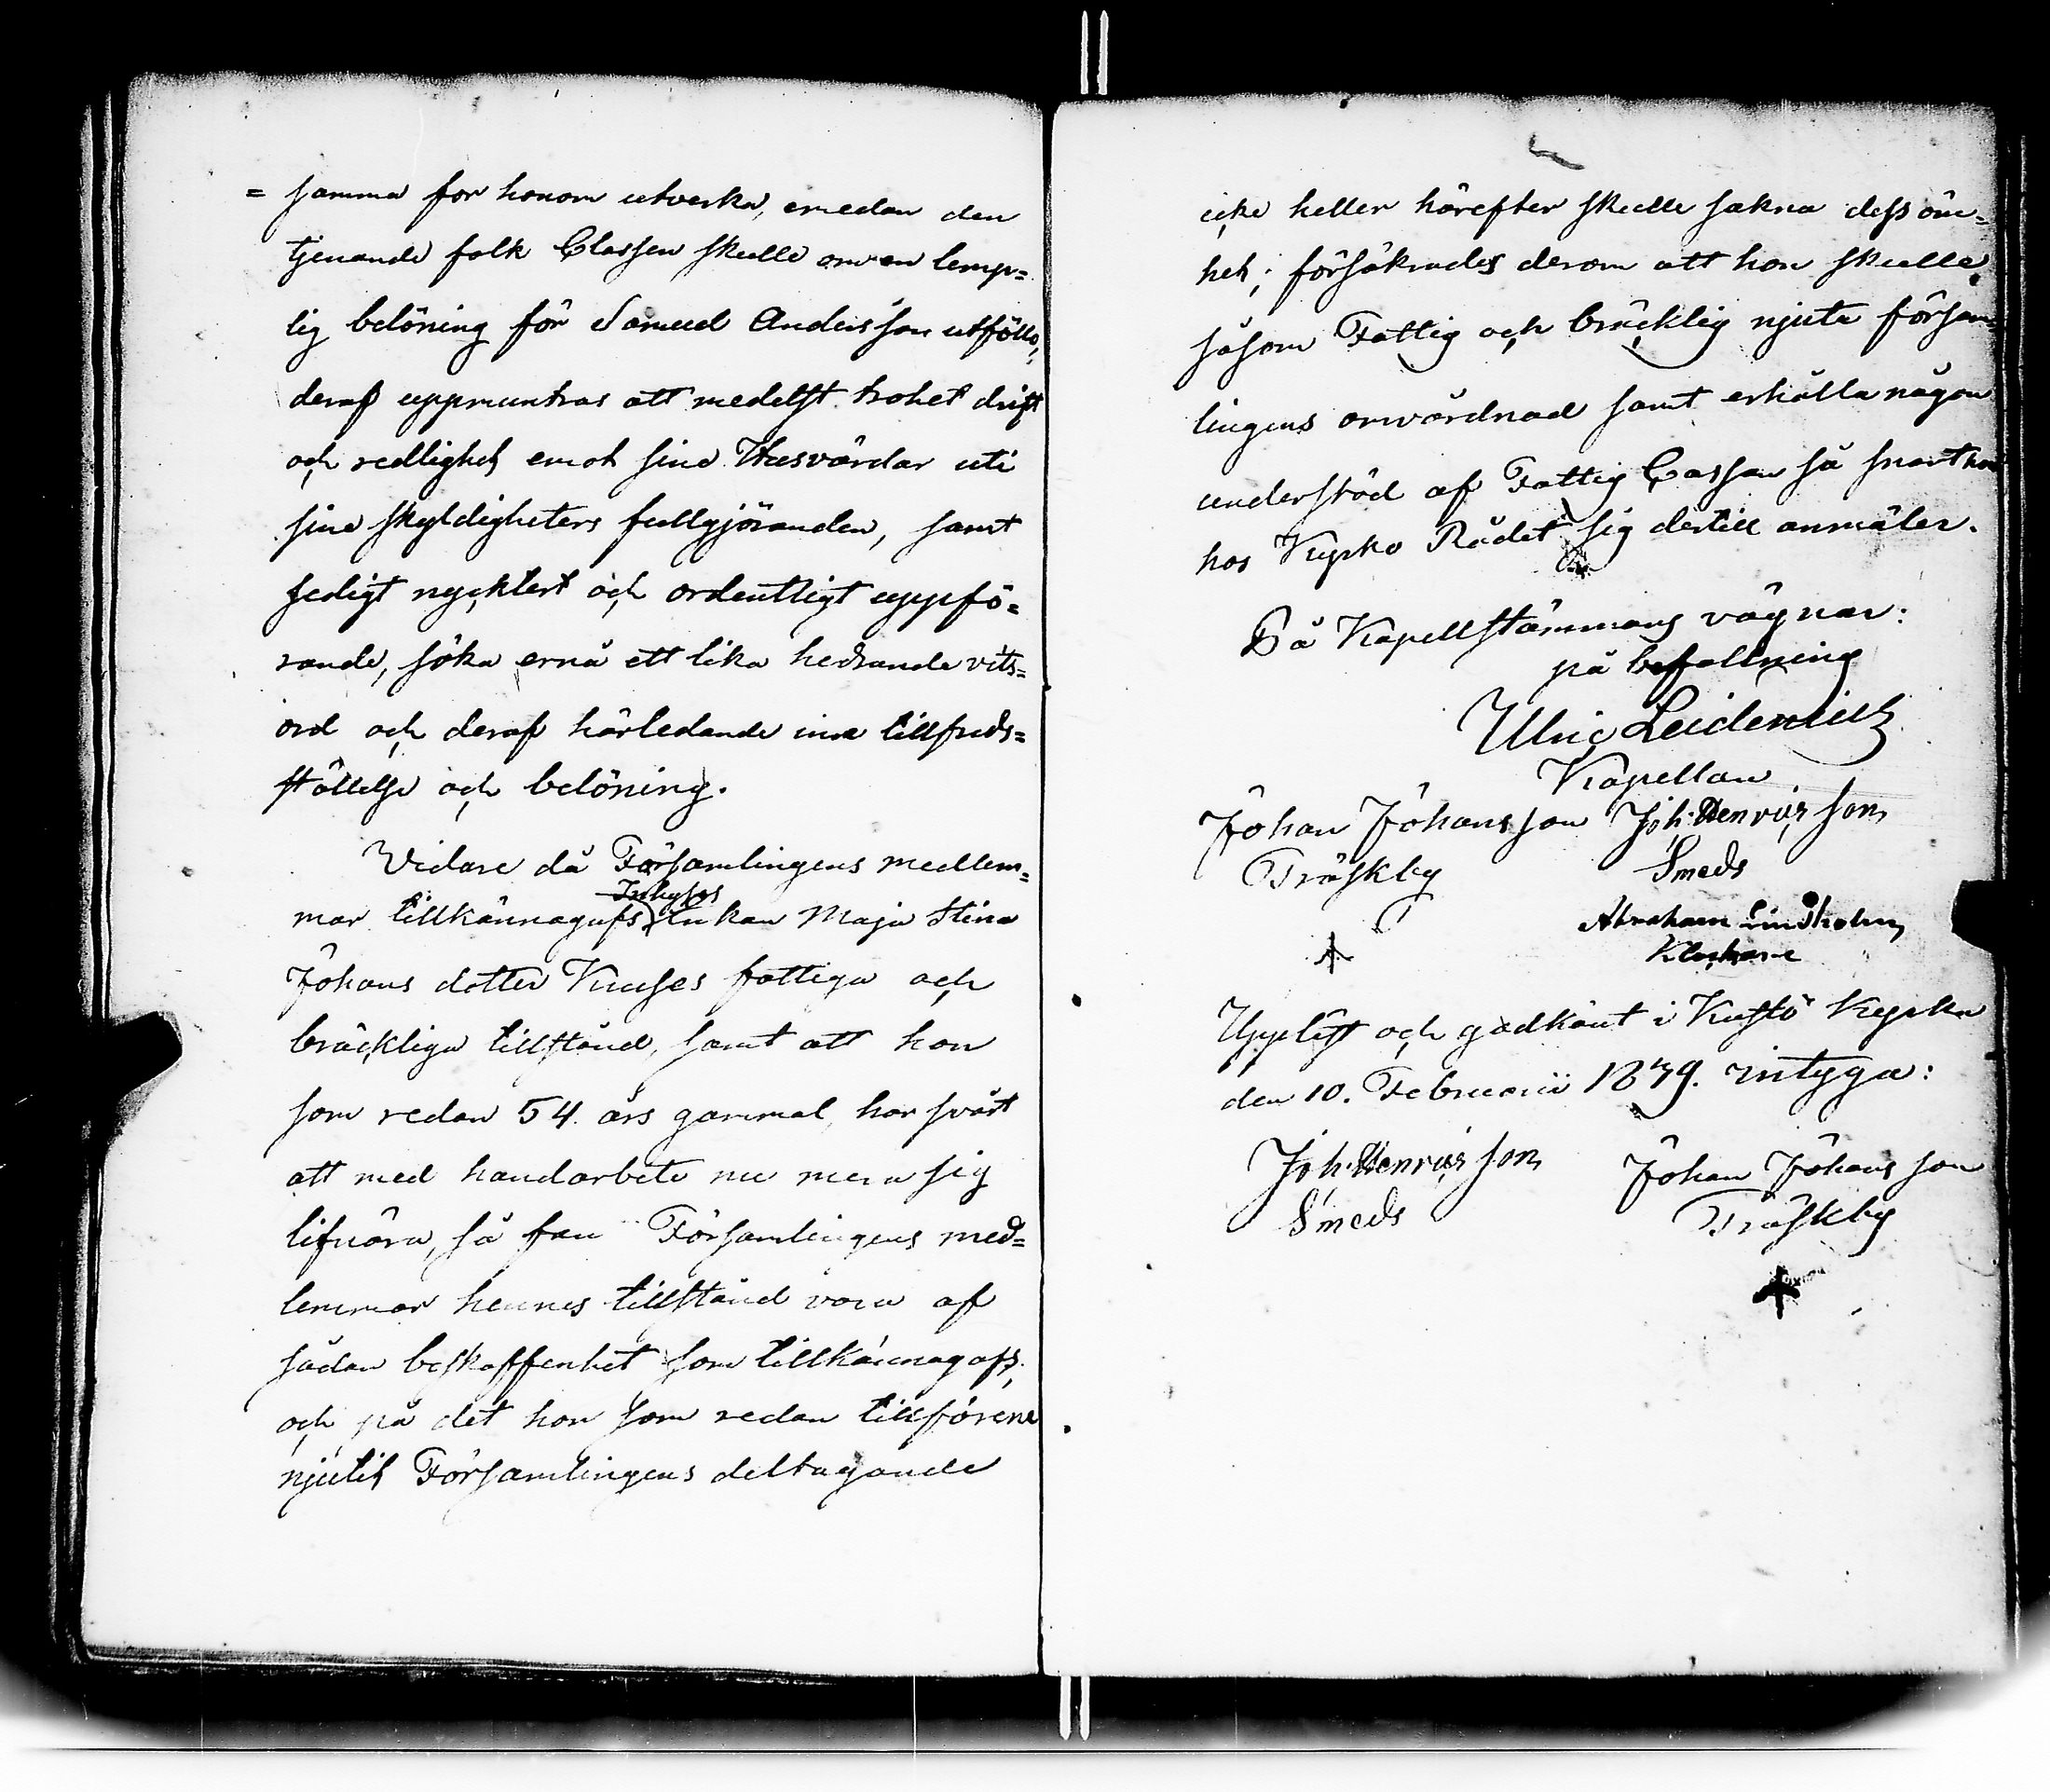 = samma for honom utverka, emedan den
tjenande folk Classen skulle om en lemp=
lig belöning för Samuel Andersson utfölls,
deraf uppmuntras att medelst trohet drift
och redlighet emot sine Husvärdar uti
sine skyldigheters fullgjöranden, samt
sedigt nycktert och ordentligt uppfö=
rande, söka ernå ett lika hedrande vits=
ord och deraf härledande inre tillfreds=
ställelse och belöning.
Vidare då Församlingens medlem=
Inhyses
mar tillkännagafs Enkan Maja Stina
Johans dotter Kuuses fattiga och
bräckliga tillstånd, samt att hon
som redan 54. års gammal, har svårt
att med handarbete nu mera sig
lifnära, så fan Församlingens med=
lemmar hennes tillstånd vara af
sådan beskaffenhet som tillkännagafs;
och på det hon som redan tillförene
njutit Församlingens deltagande
icke heller härefter skulle sakna dess öm=
het; försäkrades derom att hon skulle
såsom Fattig och bräcklig njuta försam=
lingens omvårdnad samt erhålla någon
understöd af Fattig Cassan så snart hon
hos Kyrko Rådet sig dertill anmäler.
På Kapellstämmans vägnar:
på befallning
Ulric Leidenius
Kapellan
Johan Johansson Joh: Henricsson
Träskby Smeds
Abraham Lindholm
Klockare
Uppläst och godkänt i Kustö Kyrka
den 10. Februarii 1839. intyga:
Joh: Henricsson Johan Johansson
Smeds Träskby